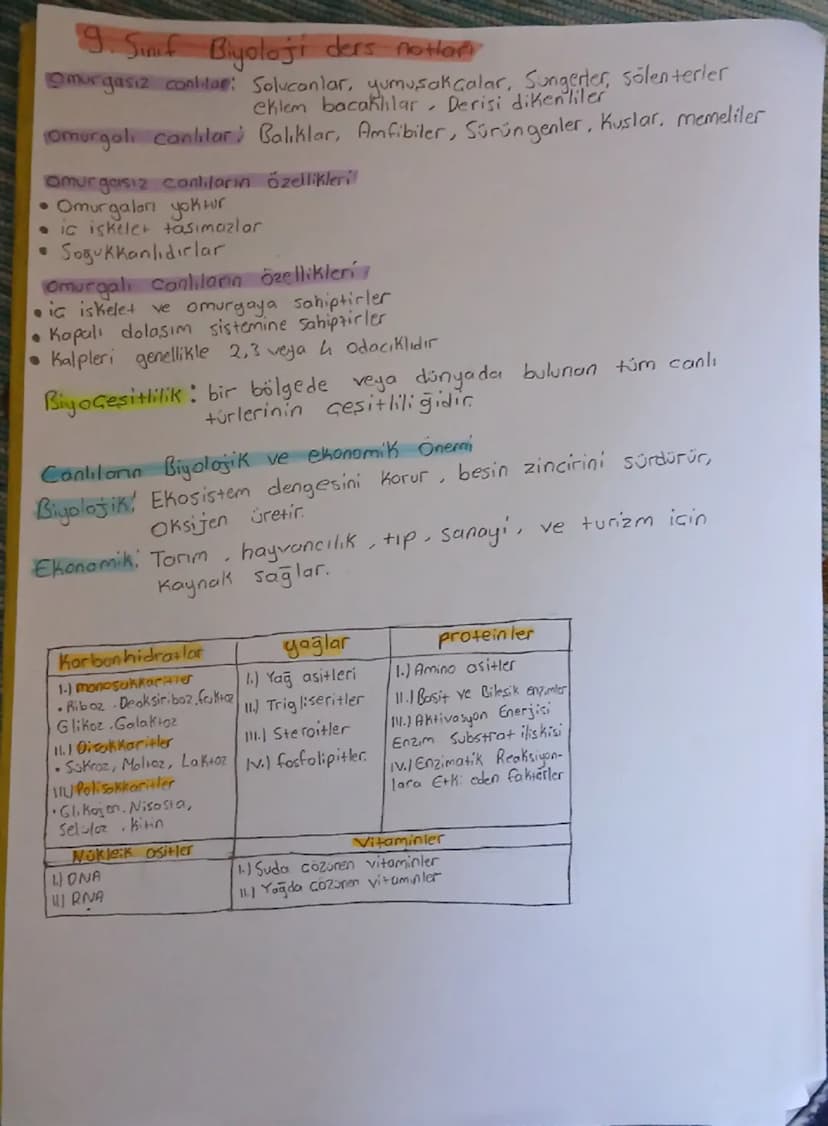 9. Sınıf Biyoloji ders notları
Omurgasız canlılar: Solucanlar, yumuşakçalar, Süngerler, sölenterler
eklem bacaklılar, Derisi dikenliler
Omurgalı canlılar: Balıklar, Amfibiler, Sürüngenler, Kuşlar, memeliler
Omurgasız canlıların özellikleri
• Omurgaları yoktur
• iç iskelet taşımazlar
• Soğukkanlıdırlar
Omurgalı canlıların özellikleri
• iç iskelet ve omurgaya sahiptirler
• Kapalı dolaşım sistemine sahiptirler
• Kalpleri genellikle 2,3 veya 4 odacıklıdır
Biyoçeşitlilik: bir bölgede veya dünyada bulunan tüm canlı
türlerinin çeşitliliğidir.
Canlıların Biyolojik ve ekonomik Önemi
Biyolojik: Ekosistem dengesini korur, besin zincirini sürdürür,
oksijen üretir.
Ekonomik: Tarım, hayvancılık, tıp, sanayi, ve turizm için
kaynak sağlar.
Karbonhidratlar
I.) monosakkaritler
• Riboz. Deoksiriboz, fruktoz
Glikoz. Galaktoz
II.) Disakkaritler
• Sükroz, Maltoz, Laktoz
III.) Polisakkaritler
• Glikojen. Nişasta,
Selüloz. Kitin
yağlar
I.) Yağ asitleri
II.) Trigliseritler
III.) Steroitler
IV.) fosfolipitler.
proteinler
I.) Amino asitler
II.) Basit ve Bileşik enzimler
III.) Aktivasyon Enerjisi
Enzim Substrat ilişkisi
IV.) Enzimatik Reaksiyon-
lara Etki eden faktörler
Nükleik asitler
I.) DNA
II) RNA
Vitaminler
I.) Suda çözünen vitaminler
II.) Yağda çözünen vitaminler